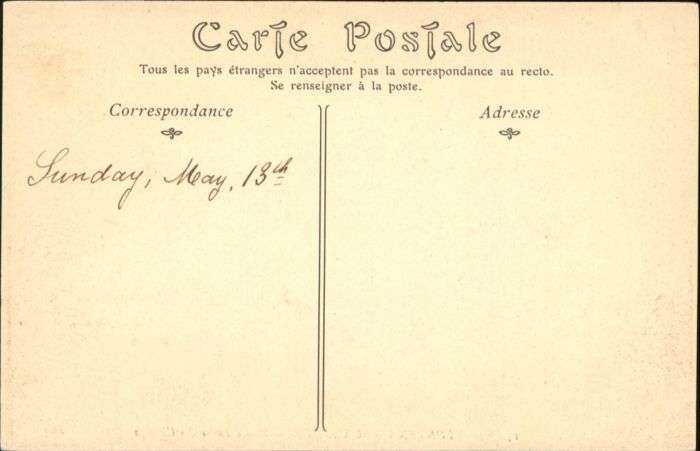 Carte Postale
Tous les pays étrangers n'acceptent pas la correspondance au recto.
Se renseigner à la poste.
Correspondance
Adresse
Sunday, May, 13th